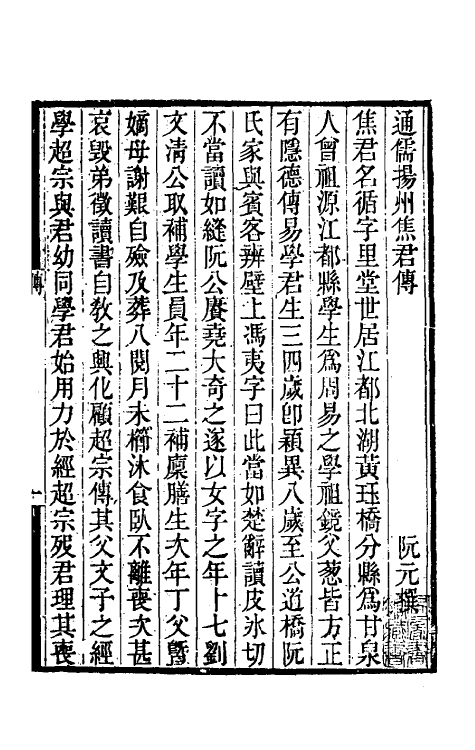 通儒揚州焦君傳
阮元撰
焦君名循字里堂世居江都北湖黃珏橋分縣爲甘泉
人曾祖源江都縣學生爲周易之學祖鏡父蔥皆方正
有隱德傳易學君生三四歲卽穎異八歲至公道橋阮
氏家與賓客辨壁上馮夷字曰此當如楚辭讀皮冰切
不當讀如縫阮公賡堯大奇之遂以女字之年十七劉
文清公取補學生員年二十二補廩膳生次年丁父曁
嫡母謝艱自殮及葬八閱月未櫛沐食臥不離喪次甚
哀毀弟徵讀書自敎之興化顧超宗傳其父文子之經
學超宗與君幼同學君始用力於經超宗歿君理其喪
傳
一